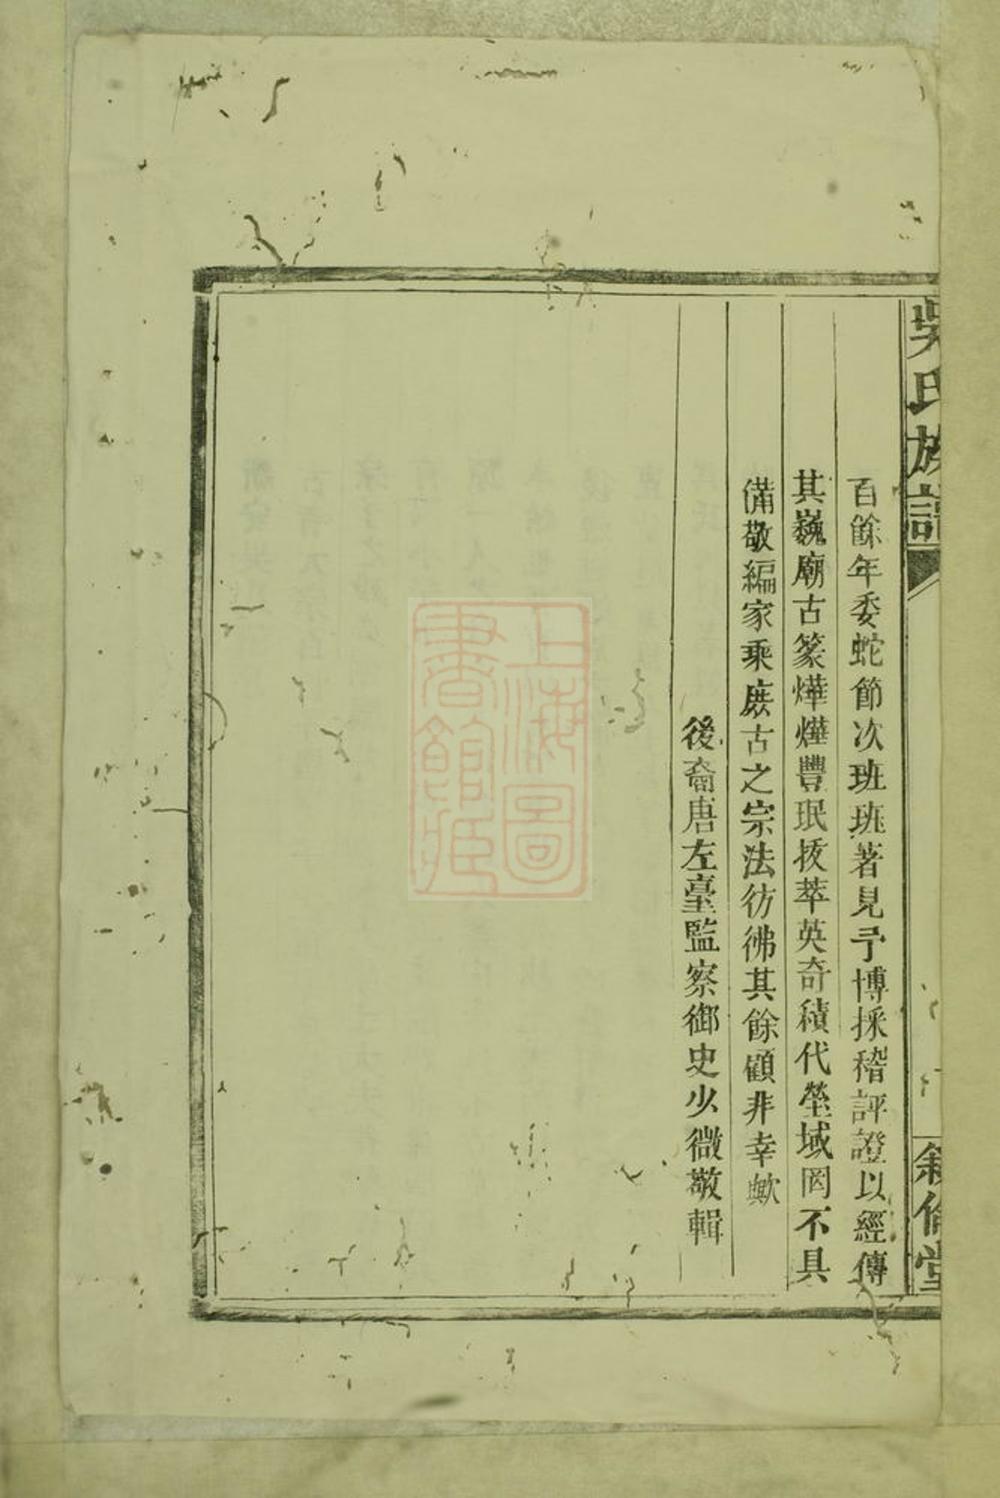 吳氏族譜
敘倫堂
百餘年委蛇節次班班著見予博採稽評證以經傳
其巍廟古篆燁燁豐珉拔萃英奇積代塋域罔不具
備敬編家乘庶古之宗法彷彿其餘顧非幸歟
後裔唐左臺監察御史少微敬輯
上海圖書館藏